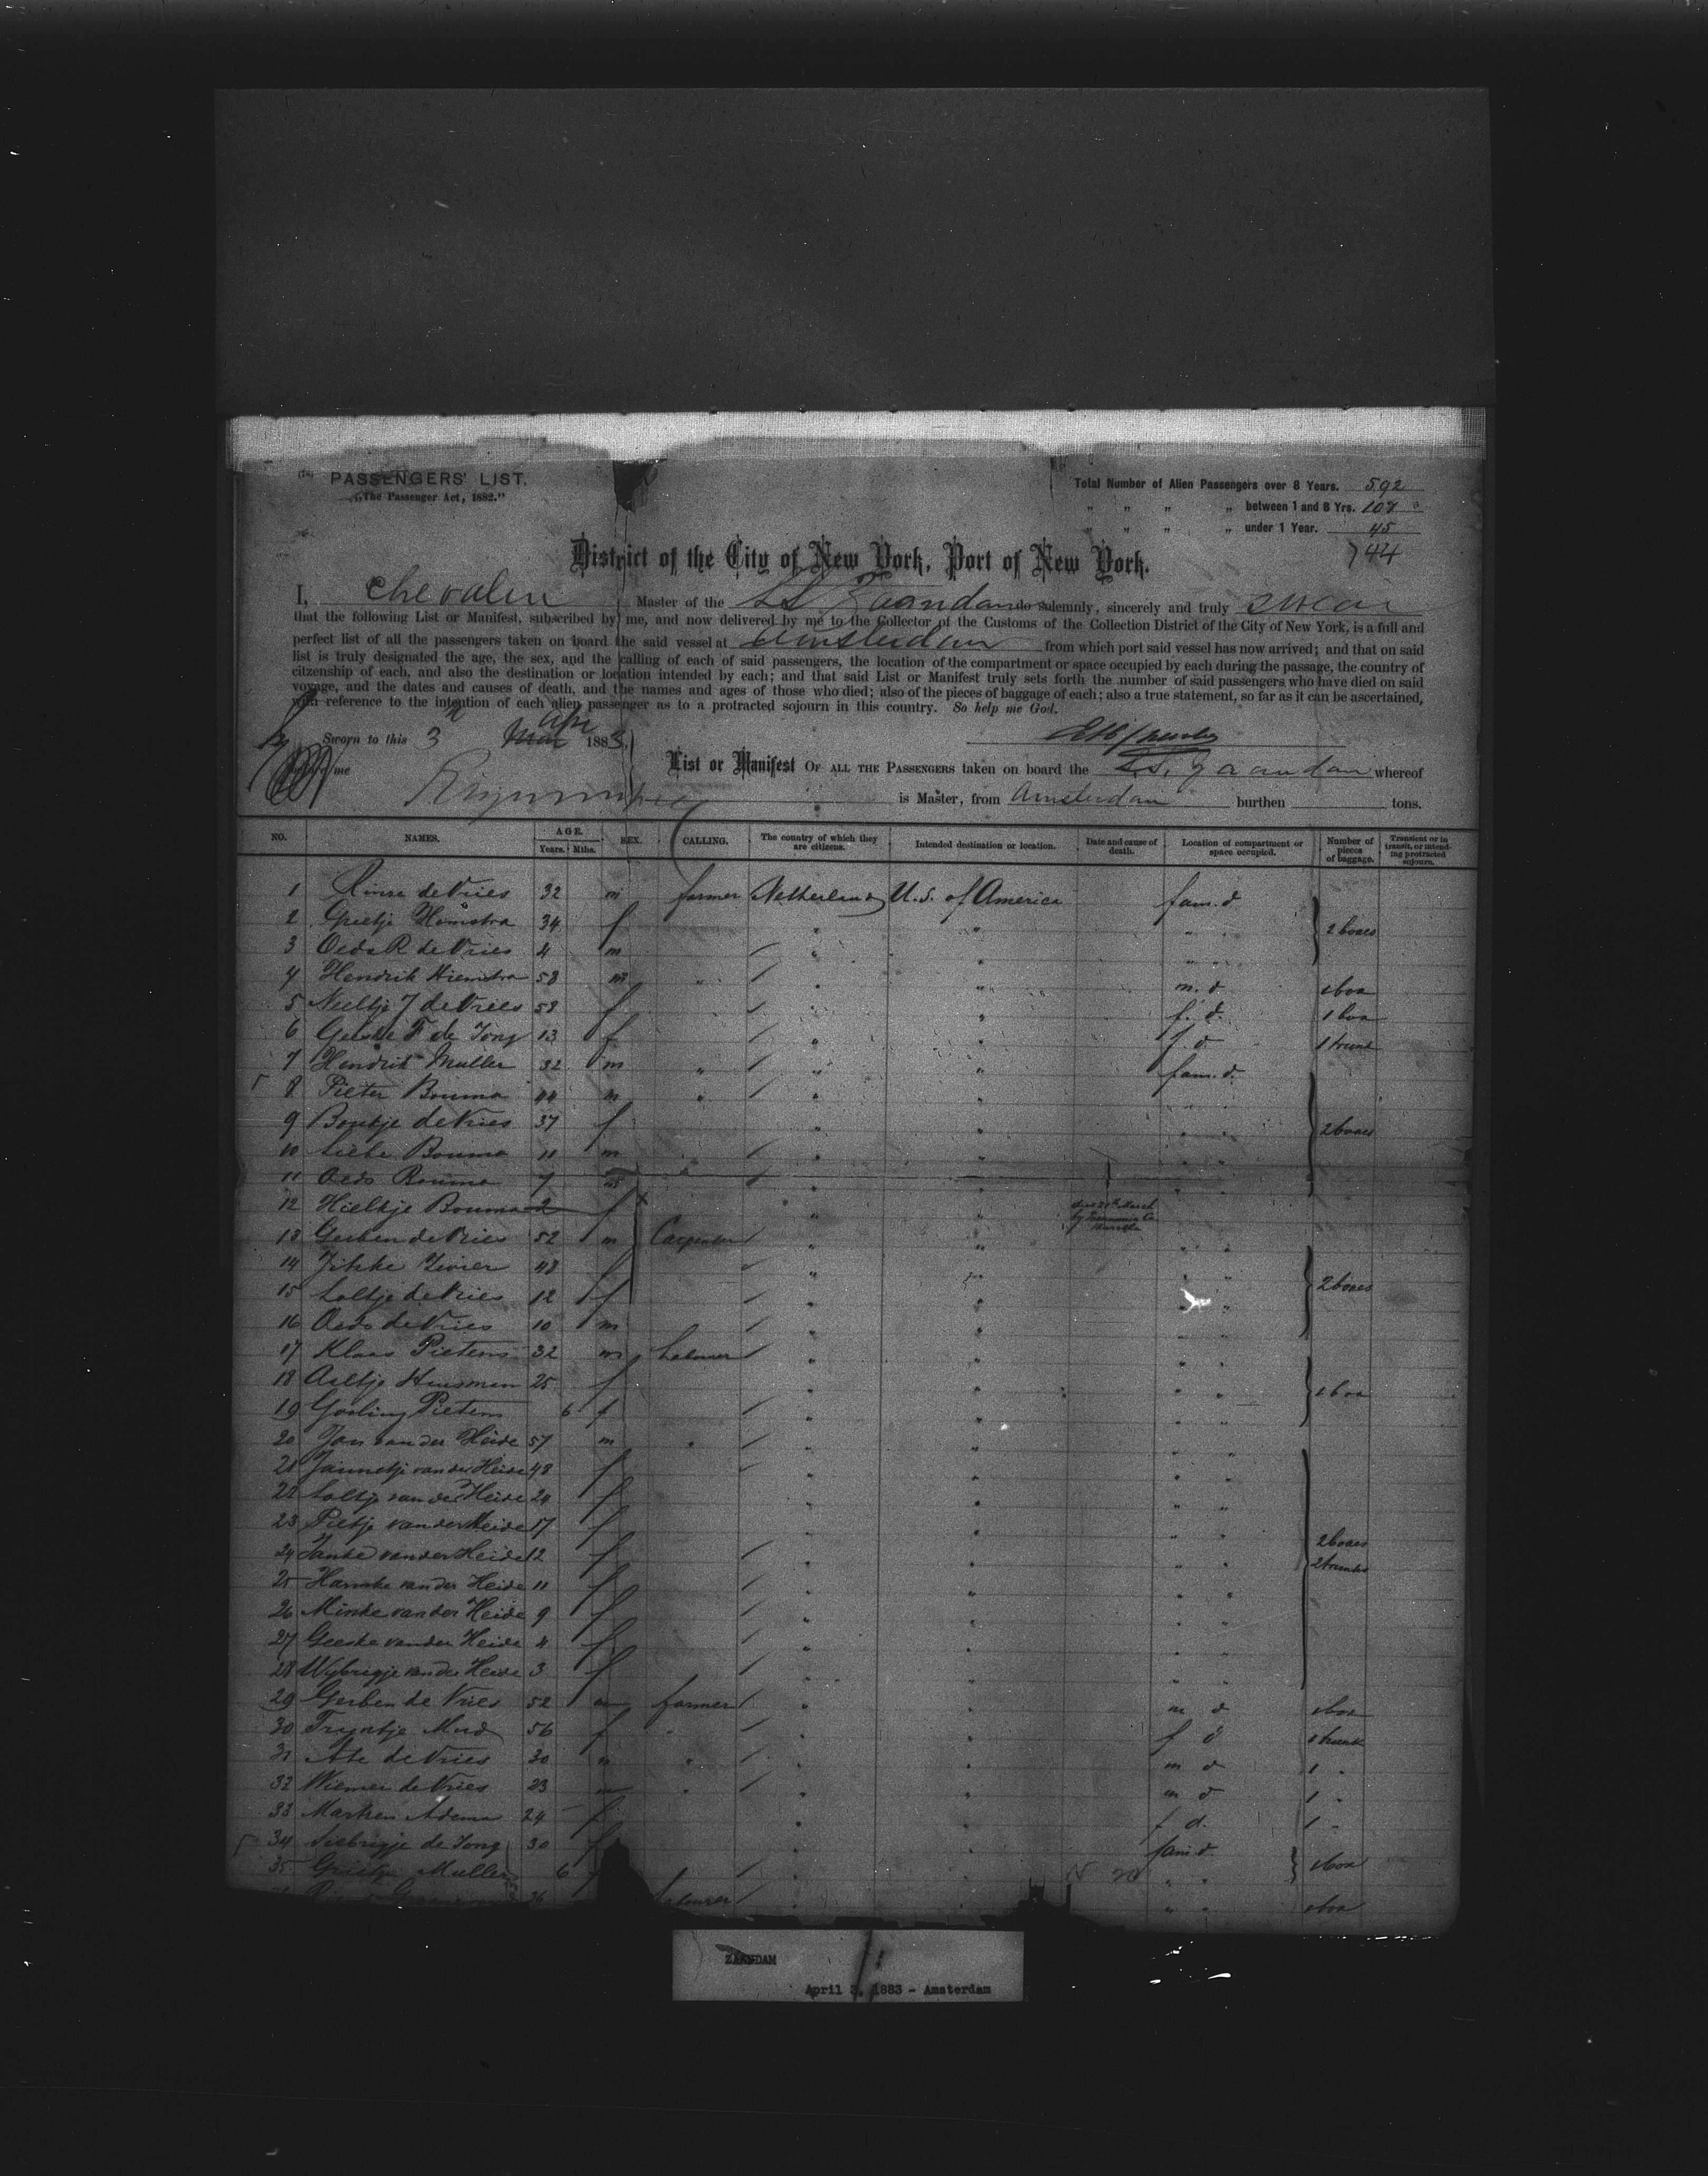 PASSENGERS' LIST.
"The Passenger Act, 1882."
Total Number of Alien Passengers over 8 Years. 592
" " " " between 1 and 8 Yrs. 107
" " " " under 1 Year. 45
744
District of the City of New York, Port of New York.
I, Chevalier Master of the SS Zaandam do solemnly, sincerely and truly swear
that the following List or Manifest, subscribed by me, and now delivered by me to the Collector of the Customs of the Collection District of the City of New York, is a full and
perfect list of all the passengers taken on board the said vessel at Amsterdam from which port said vessel has now arrived; and that on said
list is truly designated the age, the sex, and the calling of each of said passengers, the location of the compartment or space occupied by each during the passage, the country of
citzenship of each, and also the destination or location intended by each; and that said List or Manifest truly sets forth the number of said passengers who have died on said
voyage, and the dates and causes of death, and the names and ages of those who died; also of the pieces of baggage of each; also a true statement, so far as it can be ascertained,
with reference to the intention of each alien passenger as to a protracted sojourn in this country. So help me God.
Sworn to this 3 Apr 1883,
before me
List or Manifest OF ALL THE PASSENGERS taken on board the S.S. Zaandam whereof
is Master, from Amsterdam burthen tons.
NO. NAMES. AGE. Years. Mths. SEX. CALLING. The country of which they are citizens. Intended destination or location. Date and cause of death. Location of compartment or space occupied. Number of pieces of baggage. Transient or in transit, or intending protracted sojourn.
1 Rinse de Vries 32 m farmer Netherland U.S. of America fam. d
2 Grietje Hiemstra 34 f " " " " 2 boxes
3 Oeds R de Vries 4 m " " " "
4 Hendrik Hiemstra 58 m " " " m. d. 1 box
5 Neeltje J de Vries 58 f " " f. d. 1 box
6 Geeske F de Jong 13 f " " f d. 1 trunk
7 Hendrik Muller 32 m " " " fam. d.
8 Pieter Bouma 44 m " " " " "
9 Boukje de Vries 37 f " " " " 2 boxes
10 Siebe Bouma 11 m " " " "
11 Oeds Bouma 7 m " " " "
12 Hieltje Bouma 2 f " " died 28th March
13 Gerben de Vries 52 m Carpenter " " " "
14 Jikke 48 f " " " " 2 boxes
15 Loltje de Vries 12 f " " " "
16 Oeds de Vries 10 m " " " "
17 Klaas Pieters 32 m Labourer " " " "
18 Aaltje Huisman 25 f " " " " 1 box
19 Pieters 6 f " " " "
20 Jan van der Heide 57 m " " " " "
21 Jannetje van der Heide 48 f " " " "
22 Loltje van der Heide 24 f " " " "
23 Pietje van der Heide 17 f " " " " 2 boxes
24 Janke van der Heide 12 f " " " " 2 trunks
25 Harmke van der Heide 11 f " " " "
26 Minke van der Heide 9 f " " " "
27 Geeske van der Heide 4 f " " " "
28 Wybrigje van der Heide 3 f " " " "
29 Gerben de Vries 52 m farmer " " m d 1 box
30 Tryntje 56 f " " " f d 1 trunk
31 Ate de Vries 30 m " " " m d 1 "
32 Wiemer de Vries 23 m " " " m d 1 "
33 Martzen Adema 24 f " " f d. 1 "
34 Siebrigje de Jong 30 f " " fam d.
35 Grietje Muller 6 f " " " 1 box
36 labourer " " " 1 box
ZAANDAM
April 3, 1883 - Amsterdam